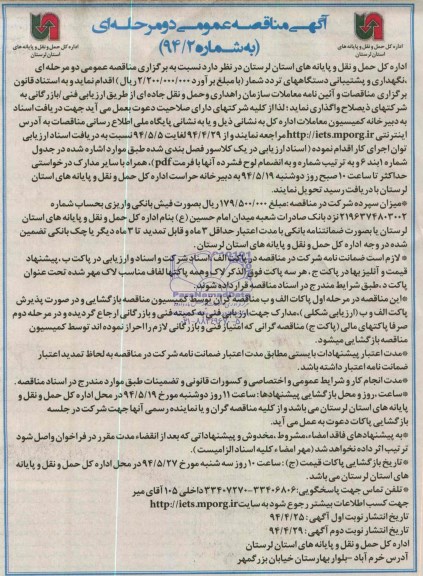 آگهی مناقصه عمومی دومرحله‌ای
(به شماره ۹۴/۲)
اداره کل حمل و نقل و پایانه های
استان لرستان
اداره کل حمل و نقل و پایانه های
استان لرستان
اداره کل حمل و نقل و پایانه های استان لرستان در نظر دارد نسبت به برگزاری مناقصه عمومی دو مرحله ای
،نگهداری و پشتیبانی دستگاههای تردد شمار (با مبلغ برآورد ۲/۲۰۰/۰۰۰/۰۰۰ ریال) اقدام نماید و به استناد قانون
برگزاری مناقصات و آئین نامه معاملات سازمان راهداری و حمل و نقل جاده ای از طریق ارزیابی فنی/بازرگانی به
شرکتهای ذیصلاح واگذاری نماید؛ لذا از کلیه شرکتهای دارای صلاحیت دعوت بعمل می آید جهت دریافت اسناد
به دبیرخانه کمیسیون معاملات اداره کل به نشانی ذیل و یا به نشانی پایگاه ملی اطلاع رسانی مناقصات به آدرس
اینترنتی http://iets.mporg.ir مراجعه نمایند از ۹۴/۴/۲۹ لغایت ۹۴/۵/۵ نسبت به دریافت اسناد ارزیابی
توان اجرای کار اقدام نموده (اسناد ارزیابی در یک کلاسور فصل بندی شده طبق موارد اشاره شده در جدول
شماره ۱ بند ۶ و به ترتیب شماره و به انضمام لوح فشرده آنها با فرمت pdf)، همراه با سایر مدارک درخواستی
حداکثر تا ساعت ۱۰ صبح روز دوشنبه ۹۴/۵/۱۹ به دبیرخانه حراست اداره کل حمل و نقل و پایانه های استان
لرستان با دریافت رسید تحویل نمایند.
*میزان سپرده شرکت در مناقصه: مبلغ ۱۷۹/۵۰۰/۰۰۰ ریال بصورت فیش بانکی واریزی بحساب شماره
۲۱۹۶۳۷۴۸۰۳۰۰۲ نزد بانک صادرات شعبه میدان امام حسین (ع) بنام اداره کل حمل و نقل و پایانه های استان
لرستان یا بصورت ضمانتنامه بانکی با مدت اعتبار حداقل ۳ ماه و قابل تمدید تا ۳ ماه دیگر یا چک بانکی تضمین
شده در وجه اداره کل حمل و نقل و پایانه های استان لرستان.
* لازم است ضمانت نامه شرکت در مناقصه در پاکت الف، اسناد شرکت و اسناد و ارزیابی در پاکت ب، پیشنهاد
قیمت و آنالیز بها در پاکت ج، هر سه پاکت فوق الذکر لاک و همه پاکتها لفاف مناسب لاک مهر شده تحت عنوان
پاکت د، طبق شرایط مندرج در اسناد مناقصه قرار داده شوند.
*این مناقصه در مرحله اول پاکات الف و ب مناقصه گران توسط کمیسیون مناقصه بازگشایی و در صورت پذیرش
پاکت الف و ب (ارزیابی شکلی)، مدارک جهت ارزیابی فنی به کمیته فنی و بازرگانی ارجاع گردیده و در مرحله دوم
صرفا پاکتهای مالی (پاکت ج) مناقصه گرانی که امتیاز فنی و بازرگانی لازم را احراز نموده اند توسط کمیسیون
مناقصه بازگشایی میشود.
*مدت اعتبار پیشنهادات بایستی مطابق مدت اعتبار ضمانت نامه شرکت در مناقصه به لحاظ تمدید اعتبار
ضمانت نامه اعتبار داشته باشد.
*مدت انجام کار و شرایط عمومی و اختصاصی و کسورات قانونی و تضمینات طبق موارد مندرج در اسناد مناقصه.
*ساعت، روز و محل بازگشایی پیشنهادها: ساعت ۱۱ روز دوشنبه مورخ ۹۴/۵/۱۹ در محل اداره کل حمل و نقل و
پایانه های استان لرستان می باشد و از کلیه مناقصه گران و یا نماینده رسمی آنها جهت شرکت در جلسه
بازگشایی پاکات دعوت به عمل می آید.
*به پیشنهادهای فاقد امضاء، مشروط، مخدوش و پیشنهاداتی که بعد از انقضاء مدت مقرر در فراخوان واصل شود
ترتیب اثر داده نخواهد شد (مهر امضاء کلیه اسناد الزامیست).
*تاریخ بازگشایی پاکات قیمت (ج): ساعت ۱۰ روز سه شنبه مورخ ۹۴/۵/۲۷ در محل اداره کل حمل و نقل و پایانه
های استان لرستان می باشد.
*تلفن تماس جهت پاسخگویی: ۳۳۴۰۶۸۰۶-۳۳۴۰۷۲۷۰ داخلی ۱۰۵ آقای میر
جهت کسب اطلاعات بیشتر رجوع شود به سایت http://iets.mporg.ir
تاریخ انتشار نوبت اول آگهی: ۹۴/۴/۲۵
تاریخ انتشار نوبت دوم آگهی: ۹۴/۴/۲۹
اداره کل حمل و نقل و پایانه های استان لرستان
آدرس خرم آباد -بلوار بهارستان خیابان بزرگمهر